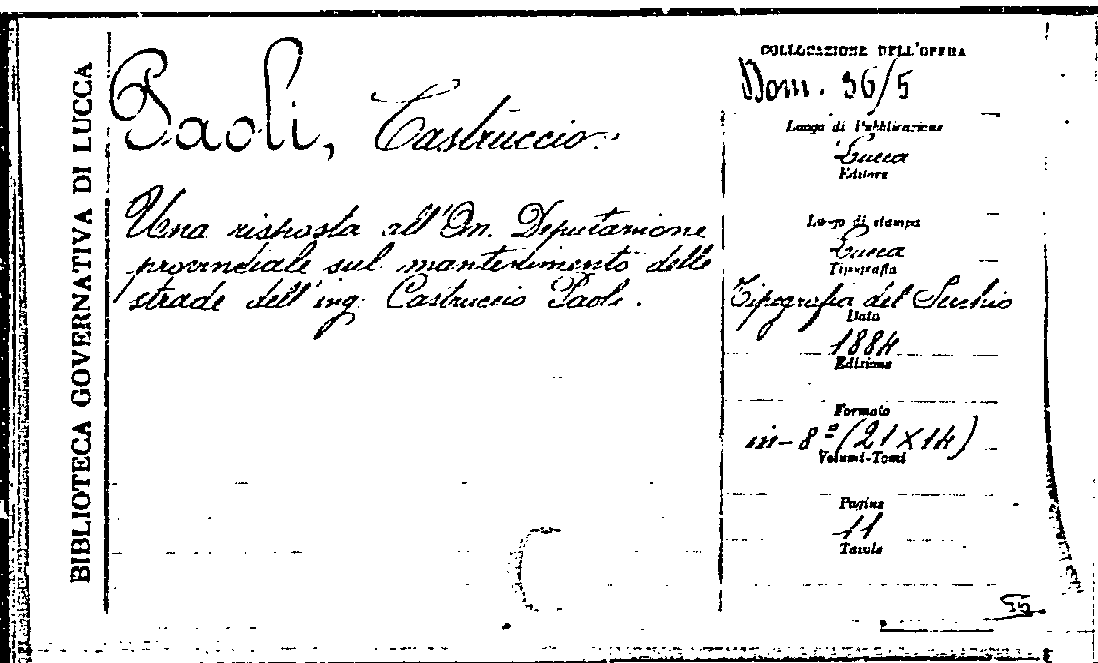 BIBLIOTECA GOVERNATIVA DI LUCCA
Paoli, Castruccio.
Una risposta all'On. Deputazione
provinciale sul mantenimento delle
strade dell'ing. Castruccio Paoli.
COLLOCAZIONE DELL'OPERA
Dom. 36/5
Luogo di Pubblicazione
Lucca
Editore
Luogo di stampa
Lucca
Tipografia
Tipografia del Serchio
Data
1884
Edizione
Formato
in-8º (21×14)
Volumi-Tomi
Pagine
11
Tavole